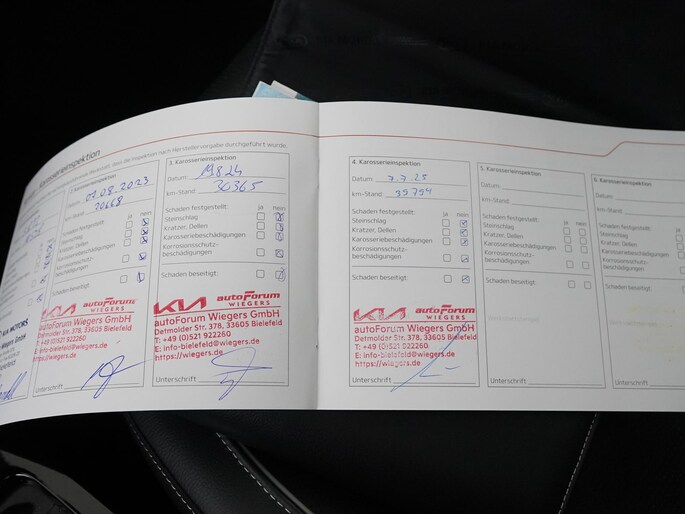 Karosserieinspektion
Karosserieinspektion
Datum 07.08.2023
km-Stand:
Schaden festgestellt: ja nein
Steinschlag
Kratzer, Dellen
Karosseriebeschädigungen
Korrosionsschutz-
beschädigungen
Schaden beseitigt:
KIA autoForum
WIEGERS
autoForum Wiegers GmbH
Detmolder Str. 378, 33605 Bielefeld
T: +49 (0)521 922260
E: info-bielefeld@wiegers.de
https://wiegers.de
Unterschrift
3. Karosserieinspektion
Datum
km-Stand: 30365
Schaden festgestellt: ja nein
Steinschlag
Kratzer, Dellen
Karosseriebeschädigungen
Korrosionsschutz-
beschädigungen
Schaden beseitigt:
KIA autoForum
WIEGERS
autoForum Wiegers GmbH
Detmolder Str. 378, 33605 Bielefeld
T: +49 (0)521 922260
E: info-bielefeld@wiegers.de
https://wiegers.de
Unterschrift
4. Karosserieinspektion
Datum 7.7.25
km-Stand: 39794
Schaden festgestellt: ja nein
Steinschlag
Kratzer, Dellen
Karosseriebeschädigungen
Korrosionsschutz-
beschädigungen
Schaden beseitigt:
KIA autoForum
WIEGERS
autoForum Wiegers GmbH
Detmolder Str. 378, 33605 Bielefeld
T: +49 (0)521 922260
E: info-bielefeld@wiegers.de
https://wiegers.de
Unterschrift
5. Karosserieinspektion
Datum
km-Stand:
Schaden festgestellt: ja nein
Steinschlag
Kratzer, Dellen
Karosseriebeschädigungen
Korrosionsschutz-
beschädigungen
Schaden beseitigt:
Unterschrift
6. Karosserieinspektion
Datum
km-Stand:
Schaden festgestellt:
Steinschlag
Kratzer, Dellen
Karosseriebeschädigungen
Korrosionsschutz-
beschädigungen
Schaden beseitigt:
Unterschrift